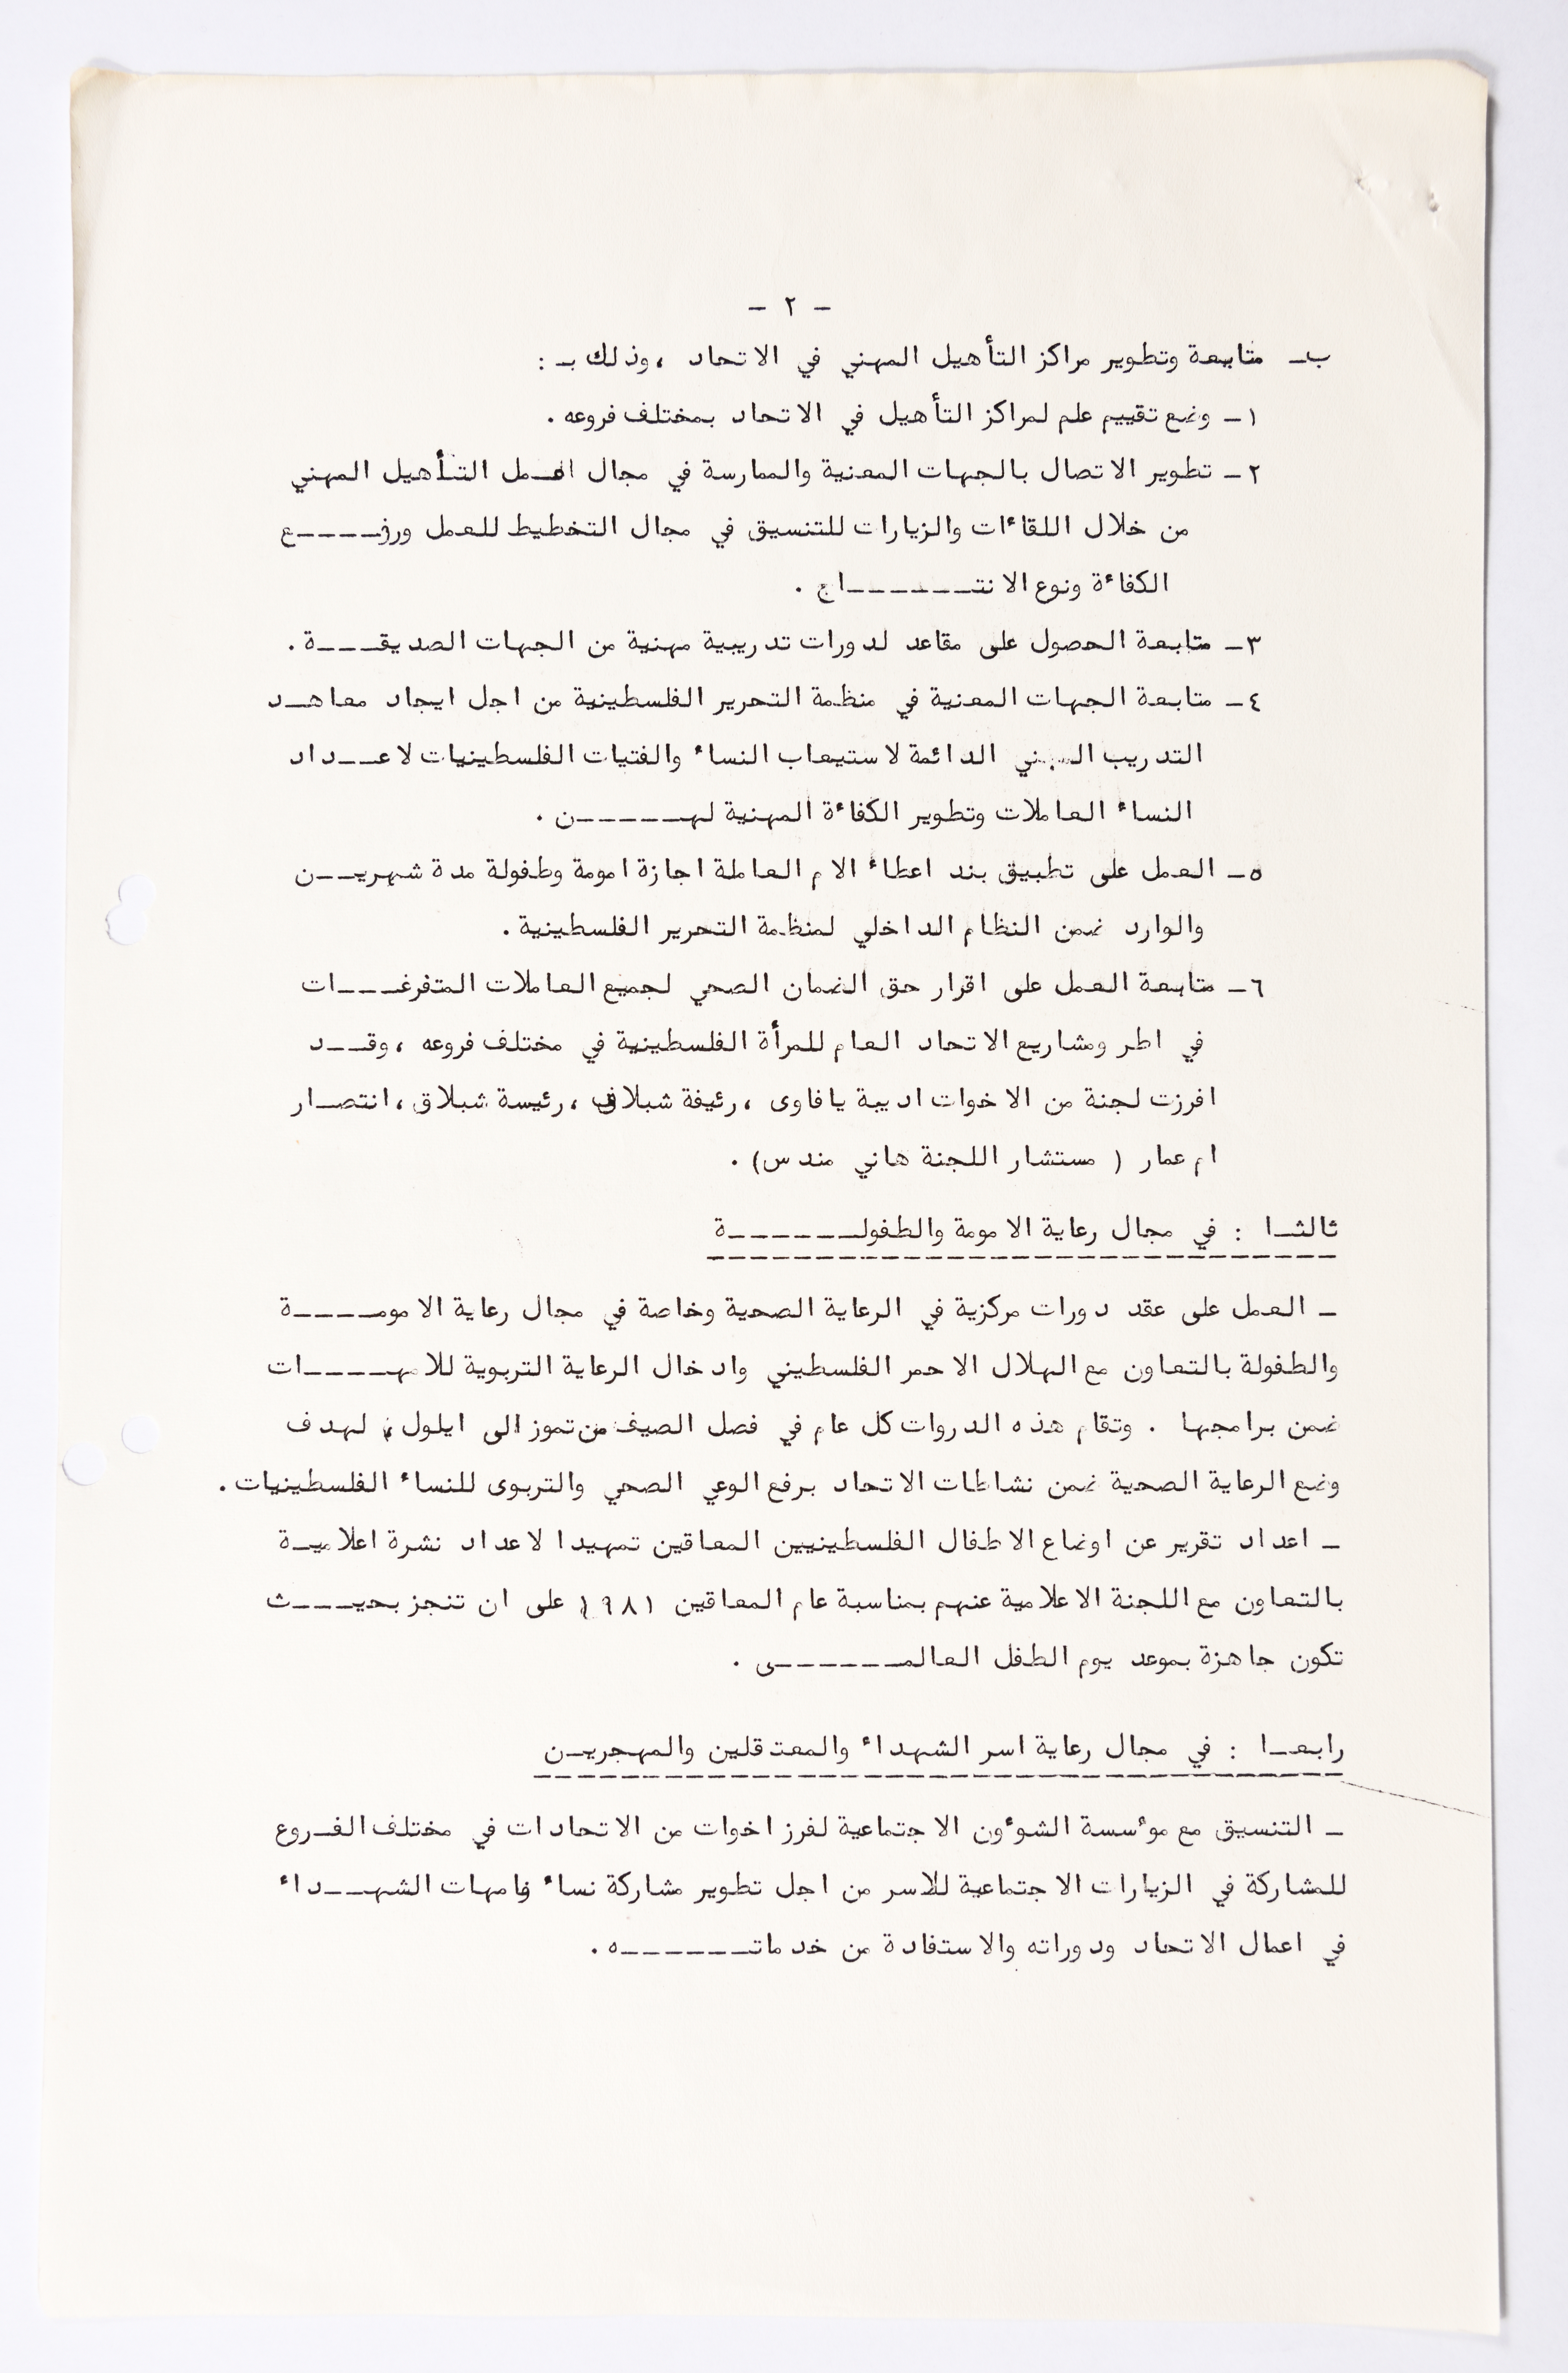 - ٢ -
ب‍ـ متابعة وتطوير مراكز التأهيل المهني في الاتحاد ، وذلك بـ :
١ـ وضع تقييم علم لمراكز التأهيل في الاتحاد بمختلف فروعه .
٢ـ تطوير الاتصال بالجهات المعنية والممارسة في مجال العمل التأهيل المهني
من خلال اللقاءات والزيارات للتنسيق في مجال التخطيط للعمل ورفـــــع
الكفاءة ونوع الانتـــــــاج .
٣ـ متابعة الحصول على مقاعد لدورات تدريبية مهنية من الجهات الصديقــــة .
٤ـ متابعة الجهات المعنية في منظمة التحرير الفلسطينية من اجل ايجاد معاهــد
التدريب المهني الدائمة لاستيعاب النساء والفتيات الفلسطينيات لاعــــداد
النساء العاملات وتطوير الكفاءة المهنية لهـــــــن .
٥ـ العمل على تطبيق بند اعطاء الام العاملة اجازة امومة وطفولة مدة شهريـــن
والوارد ضمن النظام الداخلي لمنظمة التحرير الفلسطينية .
٦ـ متابعة العمل على اقرار حق الضمان الصحي لجميع العاملات المتفرغــــات
في اطر ومشاريع الاتحاد العام للمرأة الفلسطينية في مختلف فروعه ، وقـــد
افرزت لجنة من الاخوات اديبة يافاوى ، رئيفة شبلاق ، رئيسة شبلاق ، انتصــار
ام عمار ( مستشار اللجنة هاني مندس ) .
ثالثــا : في مجال رعاية الامومة والطفولـــــــــة
ـ العمل على عقد دورات مركزية في الرعاية الصحية وخاصة في مجال رعاية الامومـــــة
والطفولة بالتعاون مع الهلال الاحمر الفلسطيني وادخال الرعاية التربوية للامهـــــات
ضمن برامجها . وتقام هذه الدروات كل عام في فصل الصيف من تموز الى ايلول ، لهدف
وضع الرعاية الصحية ضمن نشاطات الاتحاد برفع الوعي الصحي والتربوى للنساء الفلسطينيات .
ـ اعداد تقرير عن اوضاع الاطفال الفلسطينيين المعاقين تمهيدا لاعداد نشرة اعلاميــة
بالتعاون مع اللجنة الاعلامية عنهم بمناسبة عام المعاقين ١٩٨١ على ان تنجز بحيــــث
تكون جاهزة بموعد يوم الطفل العالمـــــــــى .
رابعــا : في مجال رعاية اسر الشهداء والمعتقلين والمهجريــن
ـ التنسيق مع موءسسة الشوءون الاجتماعية لفرز اخوات من الاتحادات في مختلف الفــروع
للمشاركة في الزيارات الاجتماعية للاسر من اجل تطوير مشاركة نساء وامهات الشهـــداء
في اعمال الاتحاد ودوراته والاستفادة من خدماتــــــــه .